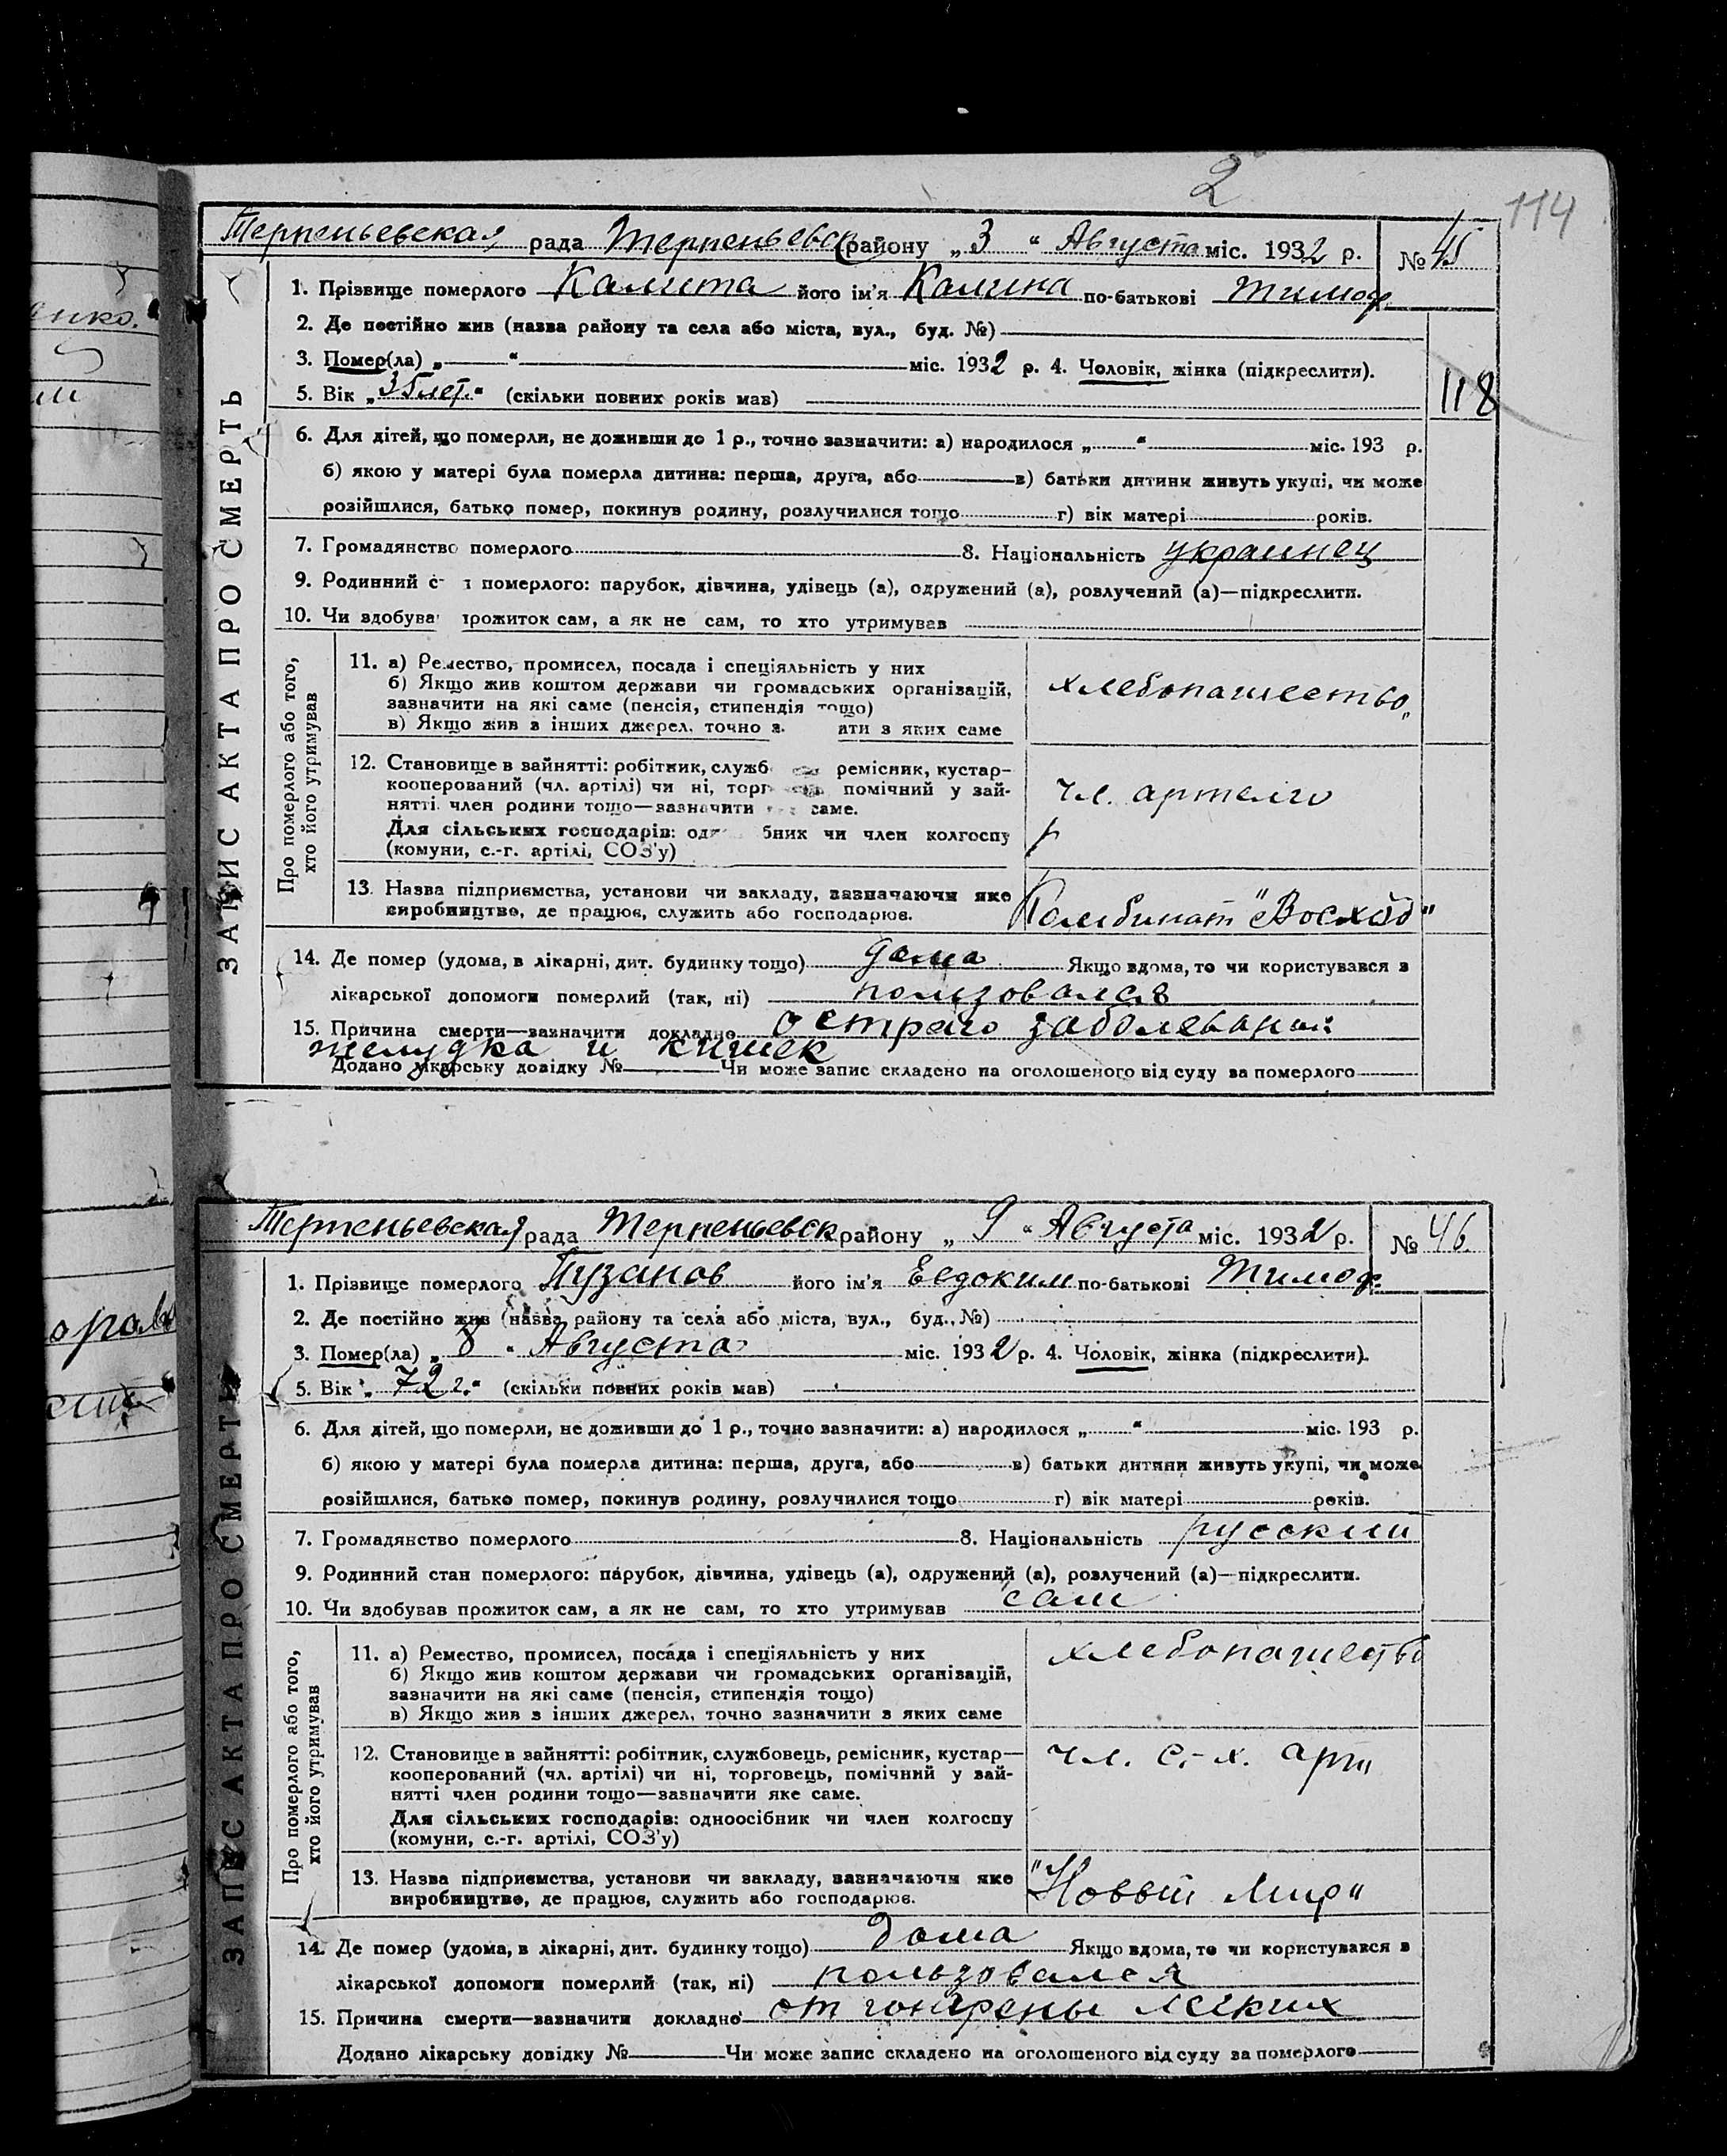 2
114
Терпеньевская рада Терпеньевск району „3“ Августа міс. 1932 р. № 45
1. Прізвище померлого Калита його ім'я Калина по-батькові Тимоф.
2. Де постійно жив (назва району та села або міста, вул., буд. №)
3. Помер(ла) „ “ міс. 1932 р. 4. Чоловік, жінка (підкреслити).
118
5. Вік „35 лет.“ (скільки повних років мав)
6. Для дітей, що померли, не доживши до 1 р., точно зазначити: а) народилося „ “ міс. 193 р.
б) якою у матері була померла дитина: перша, друга, або в) батьки дитини живуть укупі, чи може
розійшлися, батько помер, покинув родину, розлучилися тощо г) вік матері років.
7. Громадянство померлого 8. Національність украинец
9. Родинний с н померлого: парубок, дівчина, удівець (а), одружений (а), розлучений (а)—підкреслити.
10. Чи здобува прожиток сам, а як не сам, то хто утримував
ЗАПИС АКТА ПРО СМЕРТЬ
Про померлого або того, хто його утримував
11. а) Ремество, промисел, посада і спеціяльність у них
б) Якщо жив коштом держави чи громадських організацій,
зазначити на які саме (пенсія, стипендія тощо)
в) Якщо жив з інших джерел, точно з ити з яких саме
хлебопашество
12. Становище в зайнятті: робітник, служб ремісник, кустар—
кооперований (чл. артілі) чи ні, торг помічний у зай-
нятті член родини тощо—зазначити саме.
Для сільських господарів: од бник чи член колгоспу
(комуни, с.-г. артілі, СОЗ'у)
чл. артели
13. Назва підприємства, установи чи закладу, зазначаючи яке
виробництво, де працює, служить або господарює.
Комбинат "Восход"
14. Де помер (удома, в лікарні, дит. будинку тощо) дома Якщо вдома, то чи користувався з
лікарської допомоги померлий (так, ні) пользовался
15. Причина смерти—зазначити докладно острого заболевания
желудка и кишек
Додано лікарську довідку № Чи може запис складено на оголошеного від суду за померлого
Терпеньевская рада Терпеньевск району „9“ Августа міс. 1932 р. № 46.
1. Прізвище померлого Пузанов його ім'я Евдоким по-батькові Тимоф.
2. Де постійно жив (назва району та села або міста, вул., буд., №)
3. Помер(ла) „8“ Августа міс. 1932 р. 4. Чоловік, жінка (підкреслити).
5. Вік „72 г.“ (скільки повних років мав)
6. Для дітей, що померли, не доживши до 1 р., точно зазначити: а) народилося „ “ міс. 193 р.
б) якою у матері була померла дитина: перша, друга, або в) батьки дитини живуть укупі, чи може
розійшлися, батько помер, покинув родину, розлучилися тощо г) вік матері років.
7. Громадянство померлого 8. Національність русский
9. Родинний стан померлого: парубок, дівчина, удівець (а), одружений (а), розлучений (а)—підкреслити.
10. Чи здобував прожиток сам, а як не сам, то хто утримував сам
ЗАПИС АКТА ПРО СМЕРТЬ
Про померлого або того, хто його утримував
11. а) Ремество, промисел, посада і спеціяльність у них
б) Якщо жив коштом держави чи громадських організацій,
зазначити на які саме (пенсія, стипендія тощо)
в) Якщо жив з інших джерел, точно зазначити з яких саме
хлебопашество
12. Становище в зайнятті: робітник, службовець, ремісник, кустар—
кооперований (чл. артілі) чи ні, торговець, помічний у зай-
нятті член родини тощо—зазначити яке саме.
Для сільських господарів: одноосібник чи член колгоспу
(комуни, с.-г. артілі, СОЗ'у)
чл. с.-х. арт.
13. Назва підприємства, установи чи закладу, зазначаючи яке
виробництво, де працює, служить або господарює.
"Новый Мир"
14. Де помер (удома, в лікарні, дит. будинку тощо) дома Якщо вдома, то чи користувався з
лікарської допомоги померлий (так, ні) пользовался
15. Причина смерти—зазначити докладно от гангрены легких
Додано лікарську довідку № Чи може запис складено на оголошеного від суду за померлого